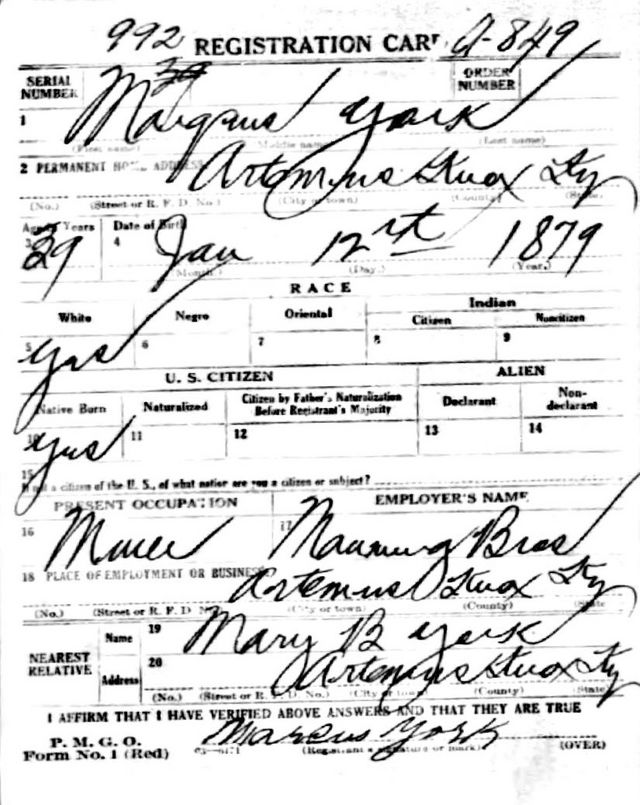 992 REGISTRATION CARD A-849
SERIAL NUMBER 39 ORDER NUMBER
1 Marqus York
(First name) (Middle name) (Last name)
2 PERMANENT HOME ADDRESS Artemus Knox Ky
(No.) (Street or R. F. D. No.) (City or town) (County) (State)
Age in Years Date of Birth
3 39 4 Jan 12rt 1879
(Month.) (Day.) (Year.)
RACE
White Negro Oriental Indian
Citizen Noncitizen
5 yes 6 7 8 9
U. S. CITIZEN ALIEN
Native Born Naturalized Citizen by Father's Naturalization Before Registrant's Majority Declarant Non-declarant
10 yes 11 12 13 14
15
If not a citizen of the U. S., of what nation are you a citizen or subject?
PRESENT OCCUPATION EMPLOYER'S NAME
16 Miner 17 Manning Bros
18 PLACE OF EMPLOYMENT OR BUSINESS Artemus Knox Ky
(No.) (Street or R. F. D. No.) (City or town) (County) (State
NEAREST RELATIVE Name 19 Mary B York
Address 20 Artemus Knox Ky
(No.) (Street or R. F. D. No.) (City or town) (County) (State)
I AFFIRM THAT I HAVE VERIFIED ABOVE ANSWERS AND THAT THEY ARE TRUE
P. M. G. O.
Form No. 1 (Red) 03—6171 Marcus York (OVER)
(Registrant's signature or mark)